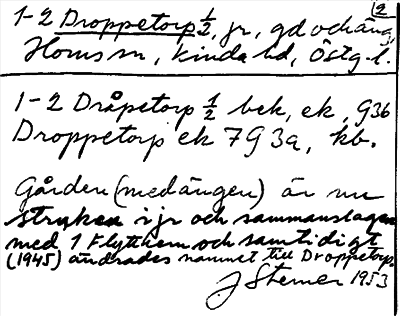 2
1-2 Droppetorp 1/2, jr, gd och äng,
Horns sn, Kinda hd, Östg.l.
1-2 Dråpetorp 1/2 bek, ek, 9G36
Droppetorp ek 7G3a, kb.
Gården (med ängen) är nu
struken i jr och sammanslagen
med 1 Flytthem och samtidigt
(1945) ändrades namnet till Droppetorp.
J Sterner 1953